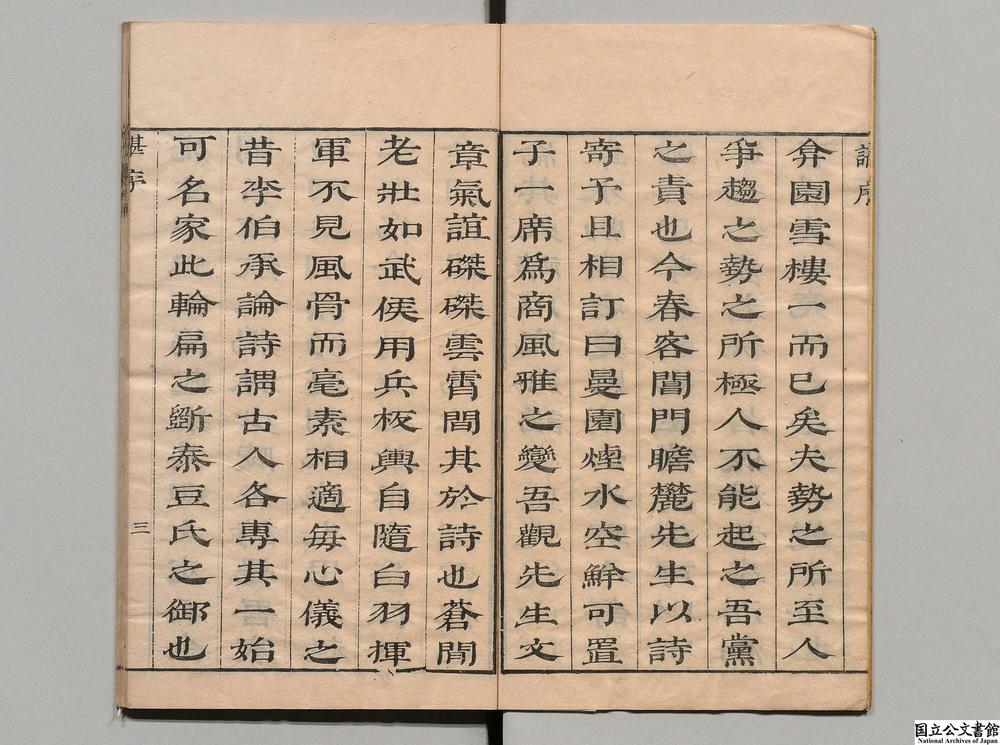 弇園雪樓一而已矣夫勢之所至人
爭趨之勢之所極人不能起之吾黨
之責也今春客閶門瞻麓先生以詩
寄予且相訂曰曼園煙水空鮮可置
子一席爲商風雅之變吾觀先生文
章氣誼磔磔雲霄間其於詩也蒼閒
老壯如武侯用兵板輿自隨白羽揮
軍不見風骨而毫素相適每心儀之
昔李伯承論詩謂古人各專其一始
可名家此輪扁之斲泰豆氏之御也
序
三
国立公文書館
National Archives of Japan